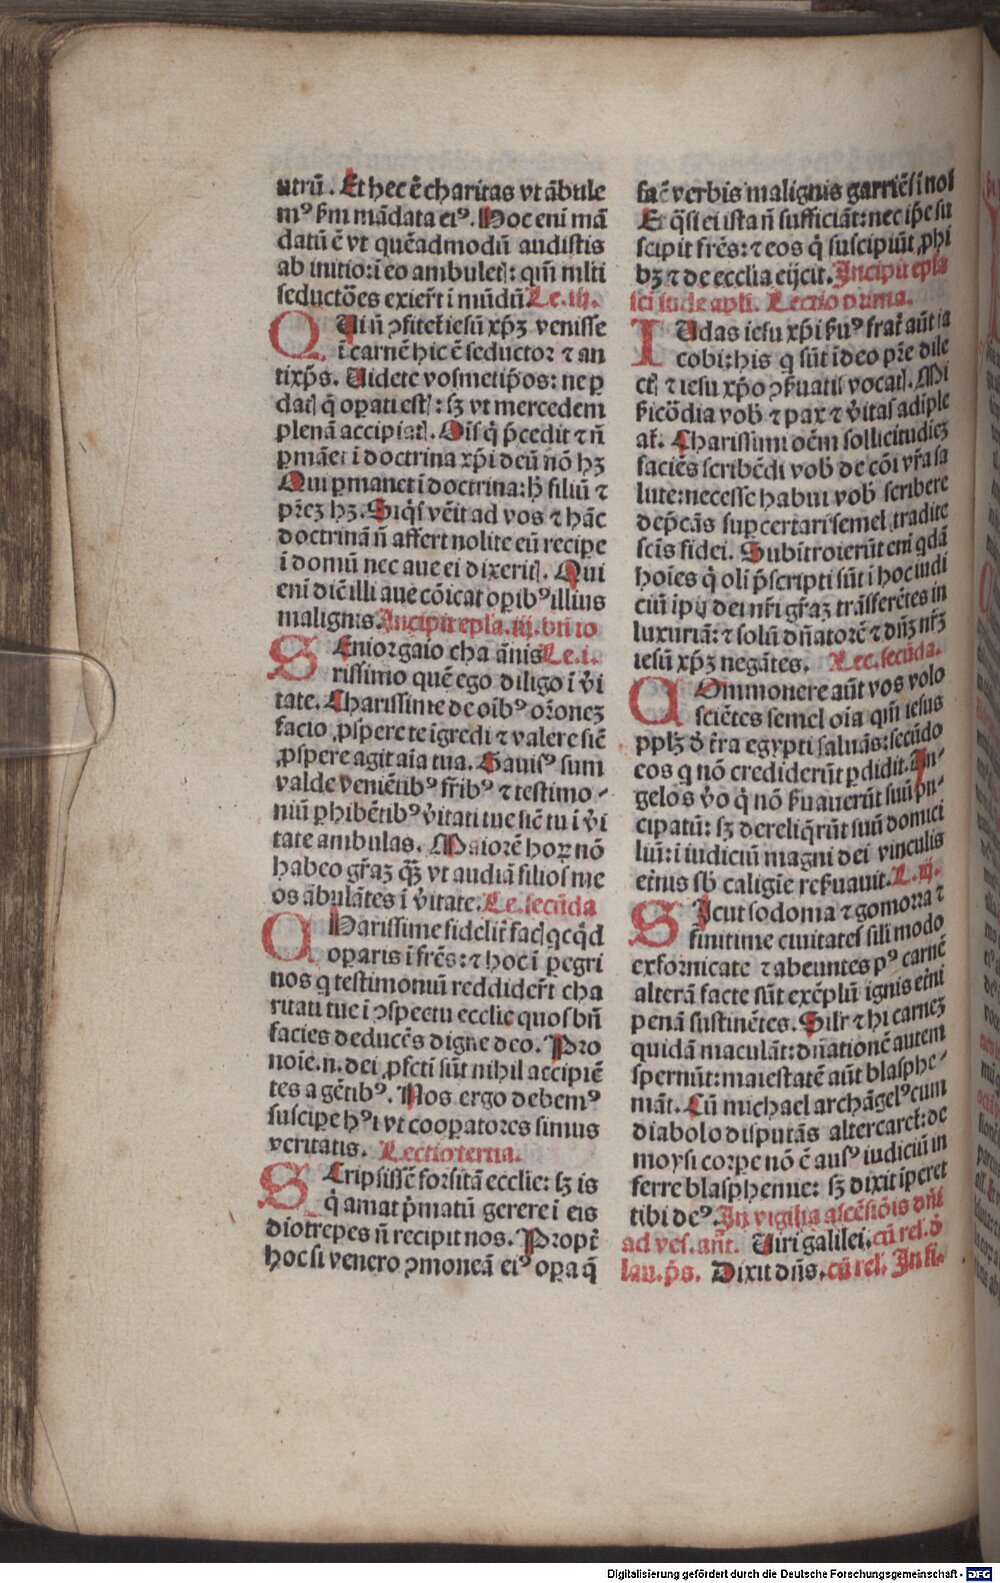 utrū. Et hec ē charitas vt ābule
mꝰ ẜm mādata eiꝰ. Hoc enī mā
datū ē vt quēadmodū audistis
ab initio: ī eo ambuletꝭ: qm̄ mlti
seductões exier̄t ī mūdū. Le. iij.
QUi n̄ ꝯfitet̄ iesū xp̄ꝫ venisse
ī carnē hic ē seductor ⁊ an
tixp̄s. Uidete vosmetip̄os: ne ꝑ
datꝭ q̄ oꝑati estꝭ: sꝫ vt mercedem
plenā accipiatꝭ. Oīs q̄ p̄cedit ⁊ n̄
ꝑmāet ī doctrina xp̄i deū nō hꝫ
Qui ꝑmanet ī doctrina: h̄ filiū ⁊
pr̄eꝫ hꝫ. Siq̄s vēit ad vos ⁊ hāc
doctrinā n̄ affert nolite eū reciꝑe
ī domū nec aue ei dixeritꝭ. Qui
enī dīc̄ illi aue cōicat oꝑibꝰ illius
malignis. Incipit epl̄a. iij. btī io
SEnior gaio cha ānis Le. i.
rissimo quē ego diligo ī v̄i
tate. Charissime de oībꝰ or̄oneꝫ
facio ꝓspere te īgredi ⁊ valere sic̄
ꝓspere agit aīa tua. Gauisꝰ sum
valde veniētibꝰ fr̄ibꝰ ⁊ testimo-
niū ꝑhibētibꝰ v̄itati tue sic̄ tu ī v̄i
tate ambulas. Maiorē hoꝝ nō
habeo gr̄aꝫ qꝫ̄ vt audiā filios me
os ābulātes ī v̄itate. Le. secūda
CHarissime fidelit̄ facꝭ qcq̄d
oparis ī frēs: ⁊ hoc ī ꝑegri
nos q testimoniū reddider̄t cha
ritati tue ī ꝯspectu ecclīe quos bn̄
facies deducēs digne deo. Pro
noīe. n. dei ꝓfcti sūt nihil accipiē
tes a gētibꝰ. Nos ergo debemꝰ
susciꝑe hꝰi vt cooꝑatores simus
veritatis. Lectio terna.
SCripsissē forsitā ecclīe: sꝫ is
q̄ amat p̄matū gerere ī eis
diotrepes n̄ recipit nos. Propt̄
hoc si venero ꝯmoneā eiꝰ oꝑa q̄
fac̄ verbis malignis garriēs ī nos
Et q̄si ei ista n̄ sufficiāt: nec ip̄e su
scipit frēs: ⁊ eos q̄ suscipiūt ꝓhi
bꝫ ⁊ de ecclīa eijcit. Incipit epl̄a
sci iude apl̄i. Lectio prima.
IUdas iesu xp̄i ẜuꝰ frat̄ aūt ia
cobi: his q sūt ī deo pr̄e dile
ctꝭ ⁊ iesu xp̄o ꝯẜuatis vocatꝭ. Mi
ẜicōdia vob̄ ⁊ pax ⁊ v̄itas adīple
at̄. Charissimi oēm sollicitudieꝫ
faciēs scribēdi vob̄ de cōi vr̄a sa
lute: necesse habui vob̄ scribere
dep̄cās suꝑcertari semel tradite
scīs fidei. Subītroierūt enī qdā
hoīes q̄ oli p̄scripti sūt ī hoc iudi
ciū ipij dei nr̄i gr̄aꝫ trāsferētes in
luxuriā: ⁊ solū dn̄atorē ⁊ dn̄ꝫ nr̄ꝫ
iesū xp̄ꝫ negātes. Lec. secūda.
COmmonere aūt vos volo
sciētes semel oīa qm̄ iesus
pplꝫ d̄ tr̄a egypti saluās: secūdo
eos q nō crediderūt ꝑdidit. An-
gelos v̄o q̄ nō ẜuauerūt suū pn̄-
cipatū: sꝫ dereliq̄rūt suū domici
liū: ī iudiciū magni dei vinculis
et̄nis sb̄ caligīe reẜuauit. L. iij.
SIcut sodoma ⁊ gomorra ⁊
finitime ciuitates sili modo
exfornicate ⁊ abeuntes pꝰ carnē
alterā facte sūt exēplū ignis et̄ni
penā sustinētes. Silr̄ ⁊ hi carneꝫ
quidā maculāt: dn̄ationē autem
spernūt: maiestatē aūt blasphe-
māt. Cū michael archāgelꝰ cum
diabolo disputās altercaret̄: de
moysi corꝑe nō ē ausꝰ iudiciū in
ferre blasphemie: sꝫ dixit īperet
tibi deꝰ. In vigilia ascēsiōis dn̄i
ad ves. an̄t. Uiri galilei. cū rel. d̄
lau. ps̄. Dixit dn̄s. cū rel. In fi-
Digitalisierung gefördert durch die Deutsche Forschungsgemeinschaft - DFG